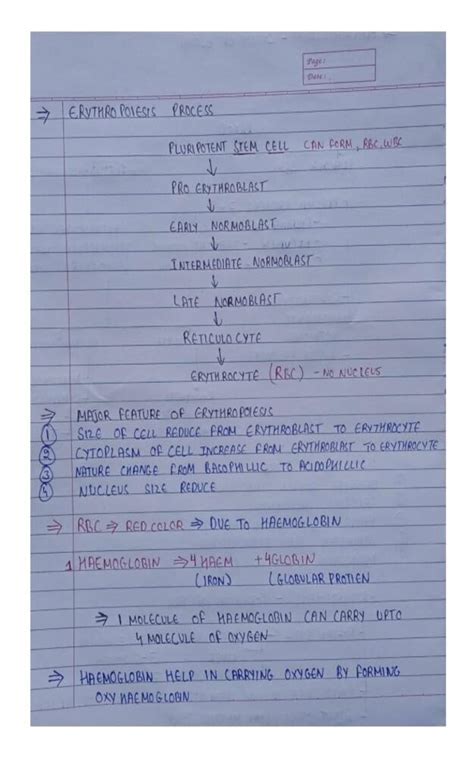 Page:
Date:
⇒ ERYTHROPOIESIS PROCESS
PLURIPOTENT STEM CELL CAN FORM, RBC, WBC
↓
PRO ERYTHROBLAST
↓
EARLY NORMOBLAST
↓
INTERMEDIATE NORMOBLAST
↓
LATE NORMOBLAST
↓
RETICULOCYTE
↓
ERYTHROCYTE (RBC) - NO NUCLEUS
⇒ MAJOR FEATURE OF ERYTHROPOIESIS
① SIZE OF CELL REDUCE FROM ERYTHROBLAST TO ERYTHROCYTE
② CYTOPLASM OF CELL INCREASE FROM ERYTHROBLAST TO ERYTHROCYTE
③ NATURE CHANGE FROM BASOPHILLIC TO ACIDOPHILLIC
④ NUCLEUS SIZE REDUCE
⇒ RBC ⇒ RED COLOR ⇒ DUE TO HAEMOGLOBIN
1 HAEMOGLOBIN ⇒ 4 HAEM + 4 GLOBIN
(IRON) (GLOBULAR PROTIEN
⇒ 1 MOLECULE OF HAEMOGLOBIN CAN CARRY UPTO
4 MOLECULE OF OXYGEN
⇒ HAEMOGLOBIN HELP IN CARRYING OXYGEN BY FORMING
OXY HAEMOGLOBIN